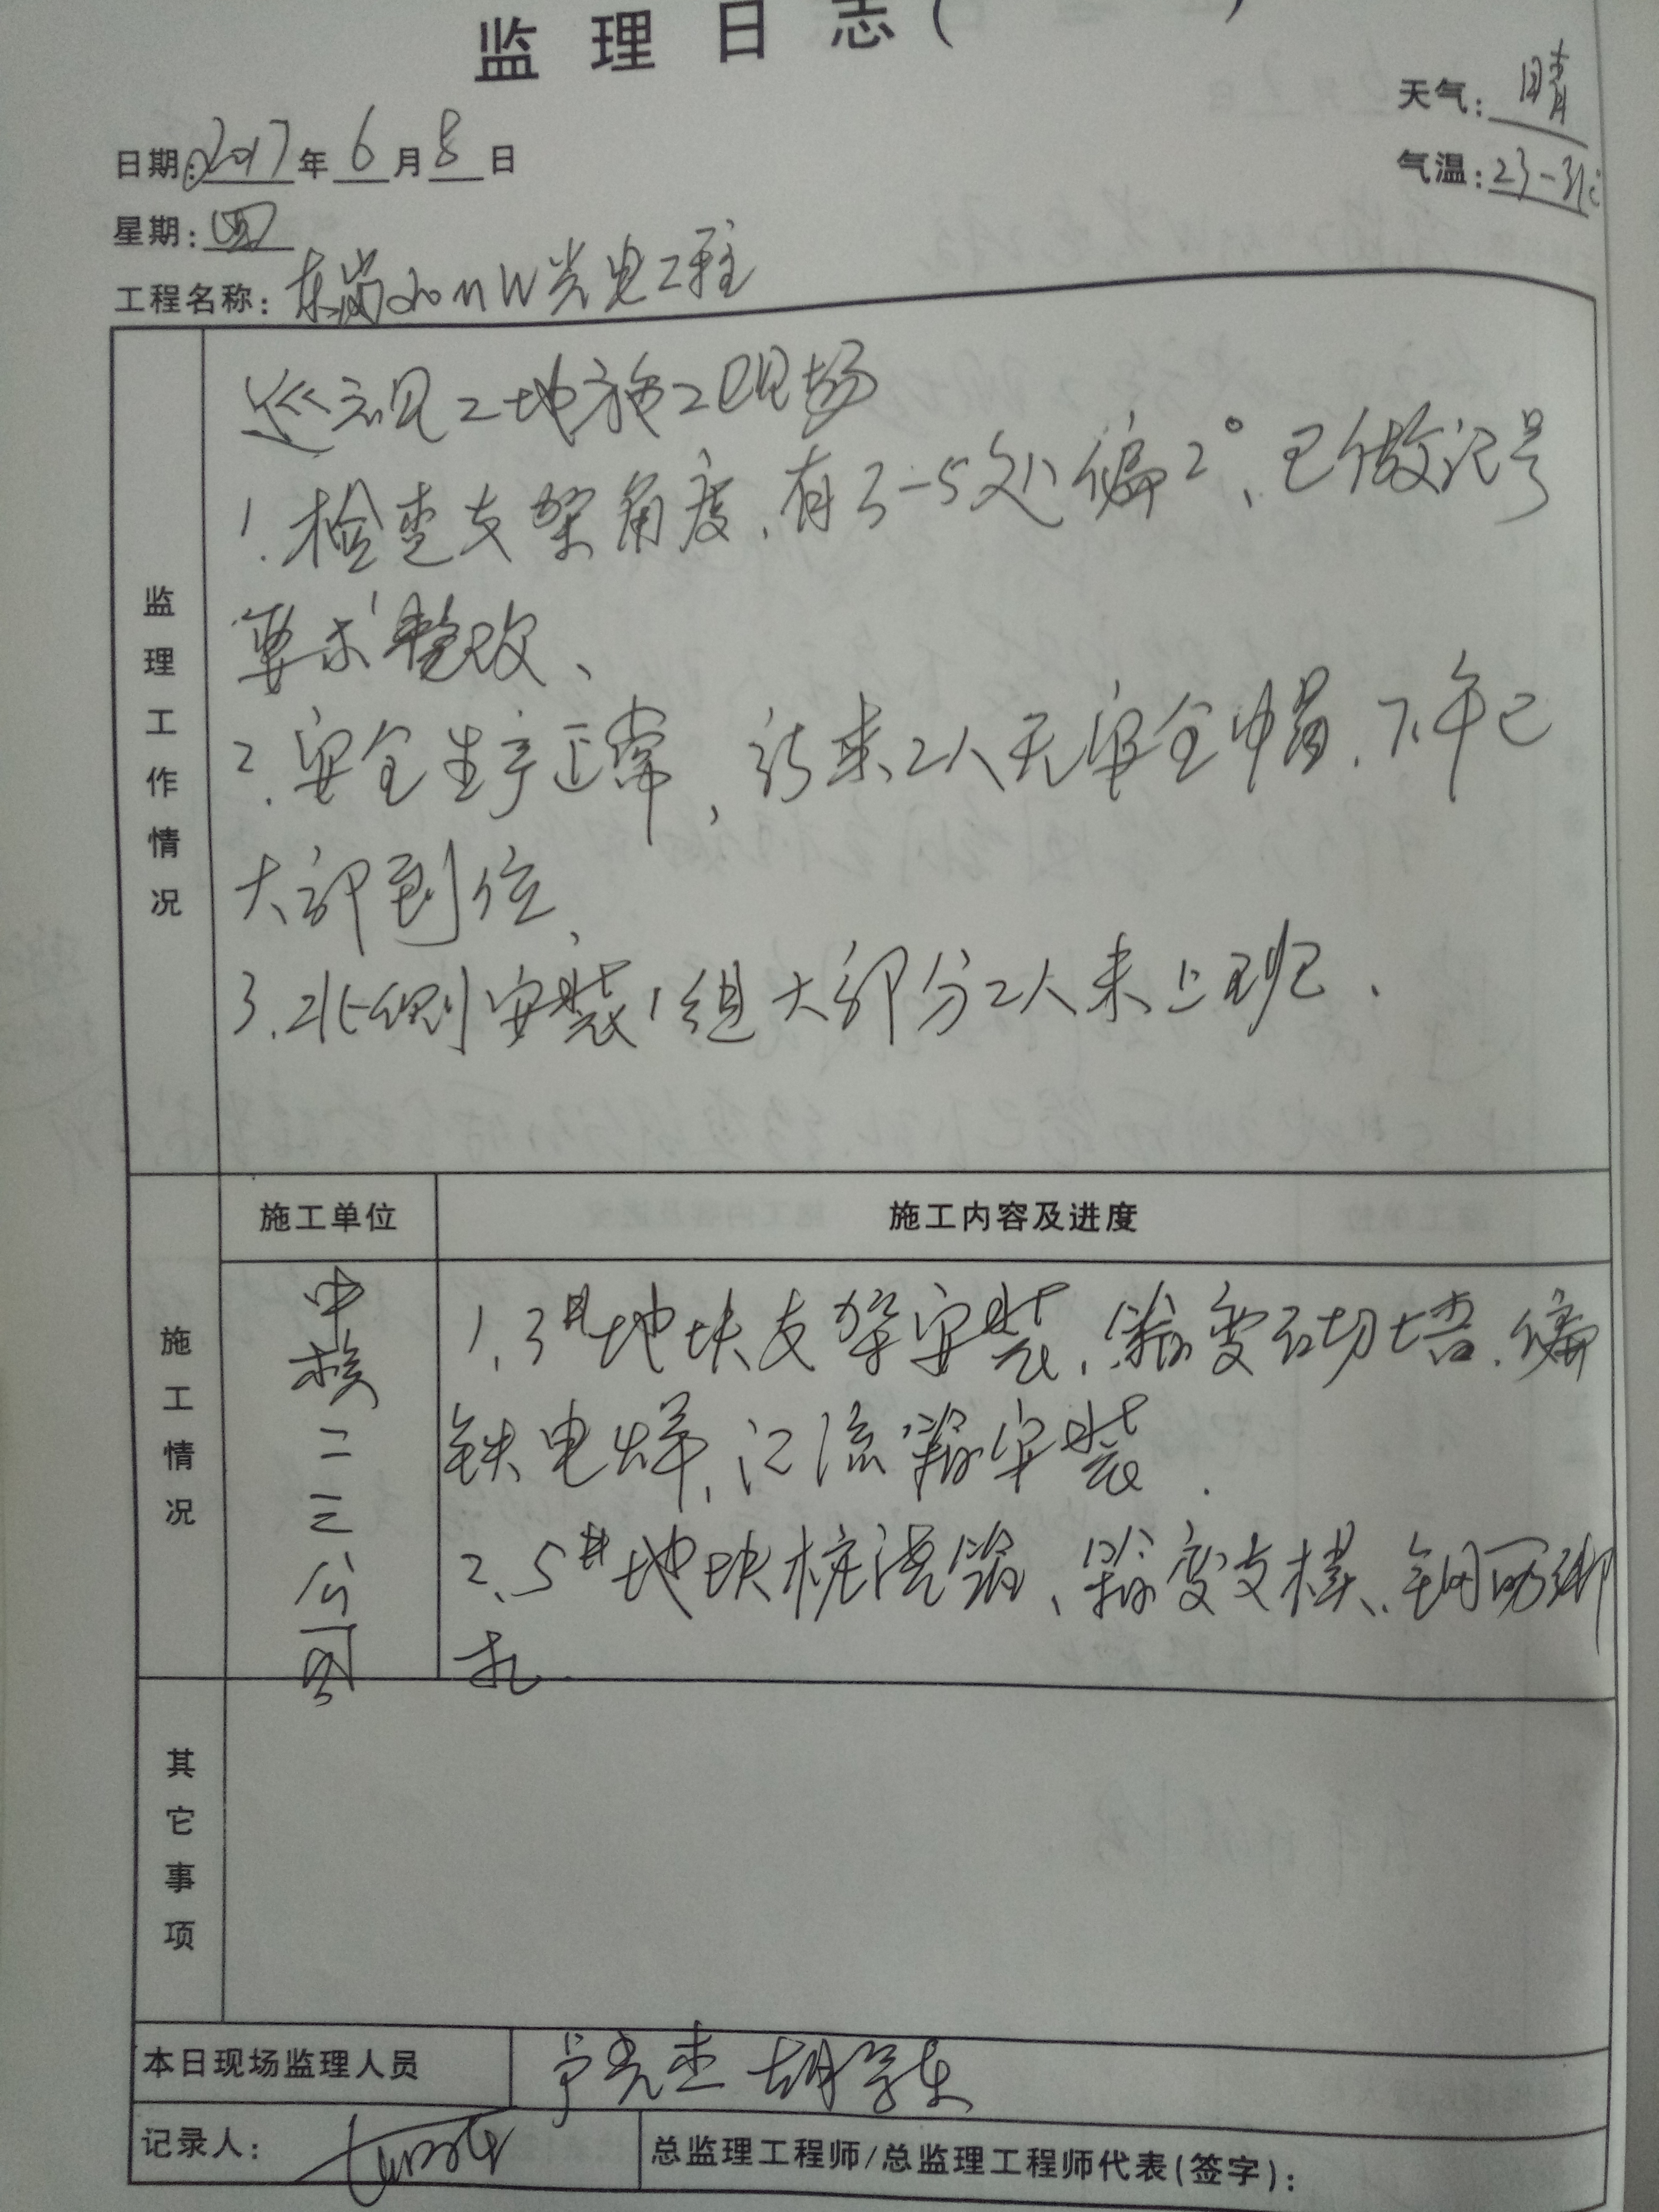 监理日志(
天气: 晴
日期: 2017年6月8日
气温: 23-31℃
星期: 四
工程名称: 东岗20MW光电工程
监理工作情况
巡视工地施工现场
1.检查支架角度,有3-5处偏2°、已做记号
要求整改、
2.安全生产正常,新来工人无安全帽.下午已
大部到位、
3.北侧安装1组大部分工人未上班.
施工情况
施工单位
施工内容及进度
中核二三公司
1.3#地块支架安装,箱变砌墙.偏
铁电焊,汇流箱安装.
2.5#地块桩浇筑、箱变支模、钢筋绑
扎.
其它事项
本日现场监理人员
胡学东
记录人:
总监理工程师/总监理工程师代表(签字):